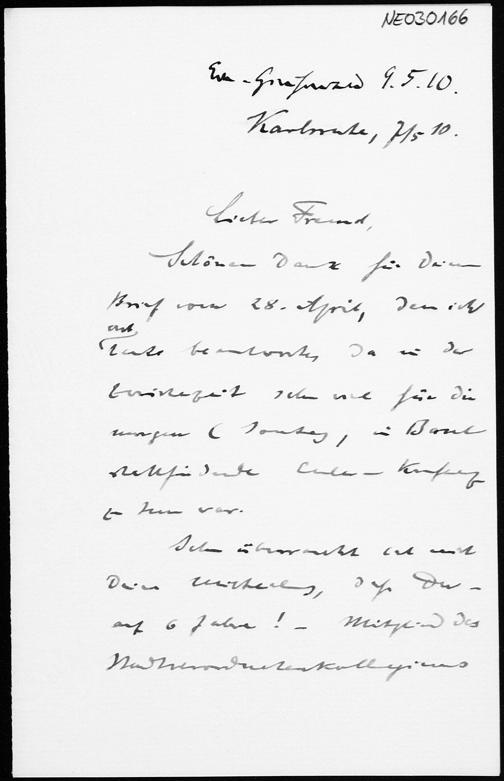 NE030166
Greifswald 9.5.10.
Karlsruhe, 7/5 10.
Lieber Freund,
Schönen Dank für Deinen
Brief vom 28. April, den ich
erst
heute beantworte, da in der
Zwischenzeit sehr viel für die
morgen (Sonntag) in Basel
stattfindende Euler-Konferenz
zu tun war.
Sehr überrascht hat mich
Deine Mitteilung, daß Du -
auf 6 Jahre! - Mitglied des
Stadtverordnetenkollegiums